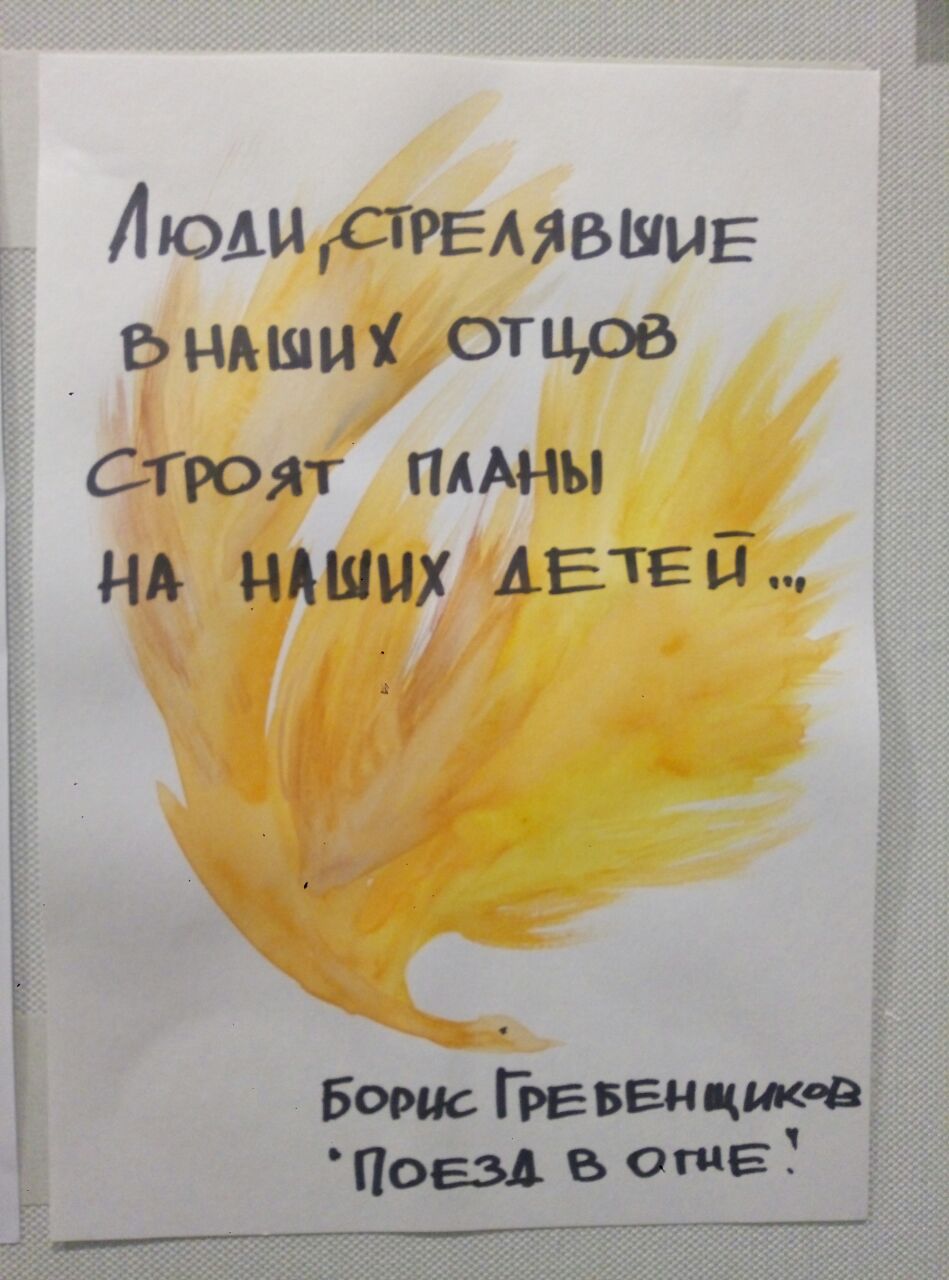 Люди, стрелявшие
в наших отцов
Строят планы
на наших детей...
Борис Гребенщиков
"Поезд в огне"